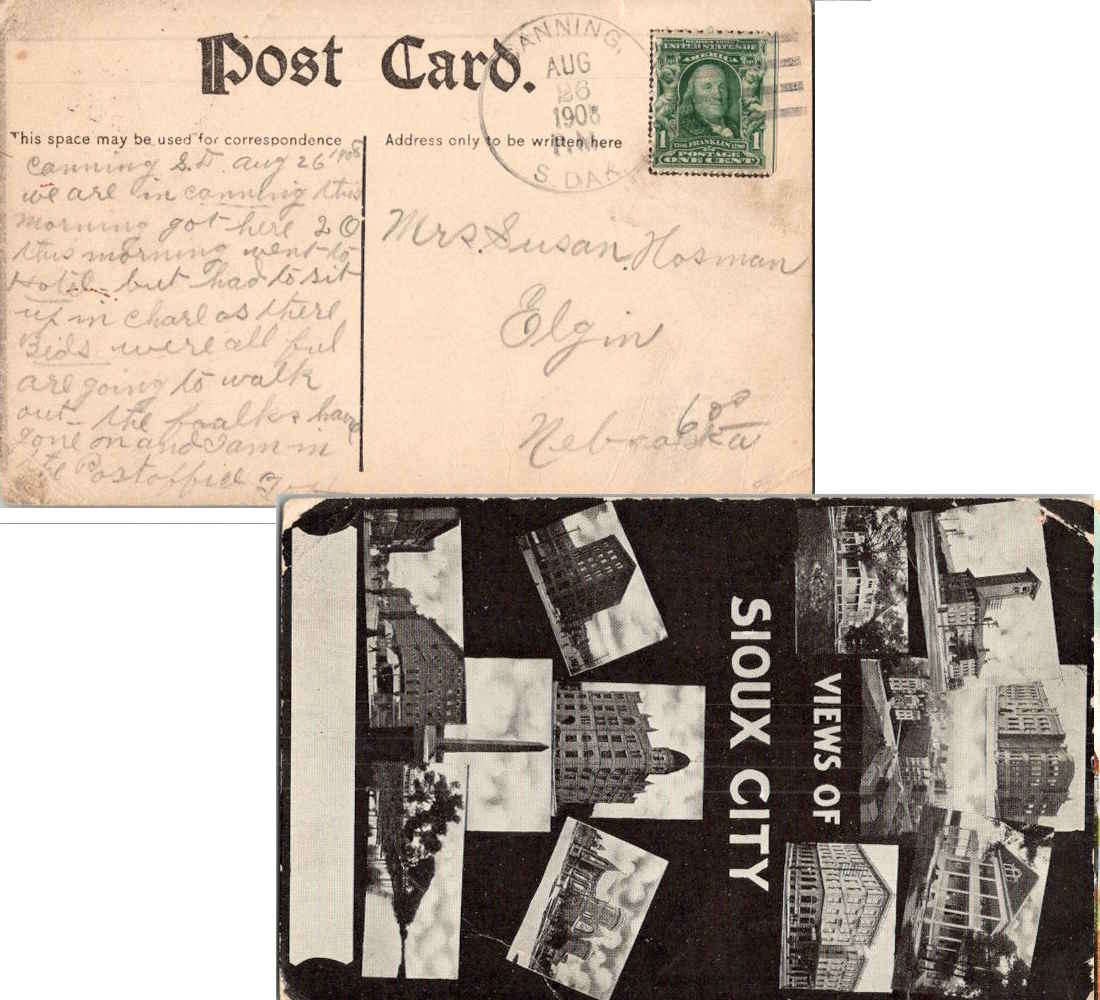 Post Card.
CANNING,
AUG
26
1908
P.M.
S. DAK
UNITED STATES OF
AMERICA
1 FRANKLIN 1
POSTAGE
ONE CENT
This space may be used for correspondence
Address only to be written here
Canning S.D. aug 26 1908
we are in canning this
morning got here 2 O
this morning went to
Hotel - but had to sit
up in charl as there
Bids were all ful
are going to walk
out - the foalks have
gone on and I am in
the Postoffice
Mrs. Susan Hosman
Elgin
Nebraska
VIEWS OF
SIOUX CITY